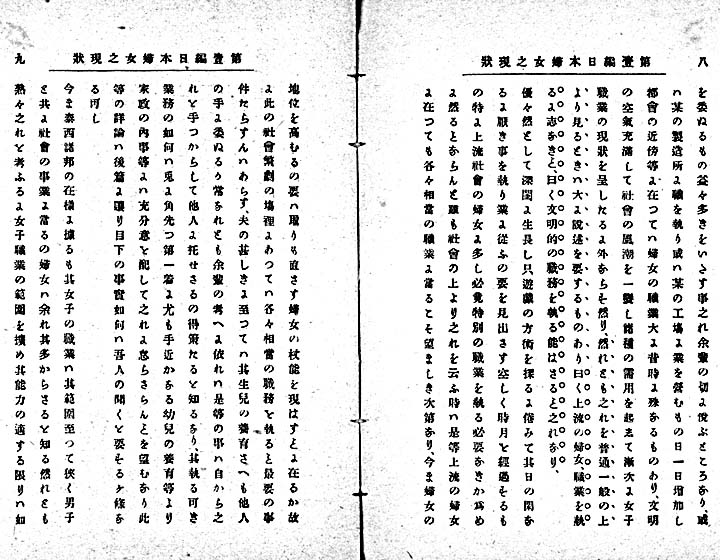 第壹編日本婦女之現狀
八
を委ぬるもの益々多きをいたす事之れ余輩の切よ悅ぶところなり或
ハ某の製造所よ職を執り或ハ某の工場よ業を營むもの日一日增加し
都會の近傍等よ在つてハ婦女の職業大よ昔時よ殊なるものあり、文明
の空氣充滿して社會の風潮を一變し種の需用を起さて漸次よ女子
職業の現狀を呈したるよ外ならそ然り、然れともこれを普通一般の上
より見るときハ大よ說述を要するものあり曰く上流の婦女、職業を執
るよ志なきと、曰く文明的の職務を執る能はさると之れなり、
優々然として深閨よ生長し只、遊藝の方術を探るよ倦みて其日の閑を
るよ厭き事を執り業よ從ふの要を見出さす空しく時月を經過そるも
の特よ上流社會の婦女よ多し必竟特別の職業を執る必要なきか爲め
よ然るとならんと雖も社會の上よりこれを云ふ時ハ是等上流の婦女
よ在つても各々相當の職業よ當るこそ望ましき次第なり、今ま婦女の
第壹編日本婦女之現狀
九
地位を高むるの要ハ取りも直さす婦女の技能を現はすとよ在るか故
よ此の社會繁劇の塲裡よあつてハ各々相當の職務を執ると最要の事
件たらすんハあらす、夫の甚しきよ至つてハ其生兒の養育さへも他人
の手よ委ぬるり常なれとも余輩の考へよ依れハ是等の事ハ自から之
れを手つからして他人よ托せさるの得策たると知るなり、其執る可き
業務の如何ハ兎よ角先つ第一着よ尤も手近かなる幼兒の養育等より
家政の內事等よハ充分意を配して之れよ怠らさらんとを望むなり此
等の詳論ハ後篇よ讓り目下の事實如何ハ吾人の聞くを要そるヶ條な
る可し
今ま泰西諸邦の在樣よ據るも其女子の職業ハ其範圍至つて狹く男子
と共よ社會の事業よ當るの婦女ハ余れ其多からさると知る然れとも
熟々之れを考ふるよ女子職業の範圍を擴め其能力の適する限りハ如